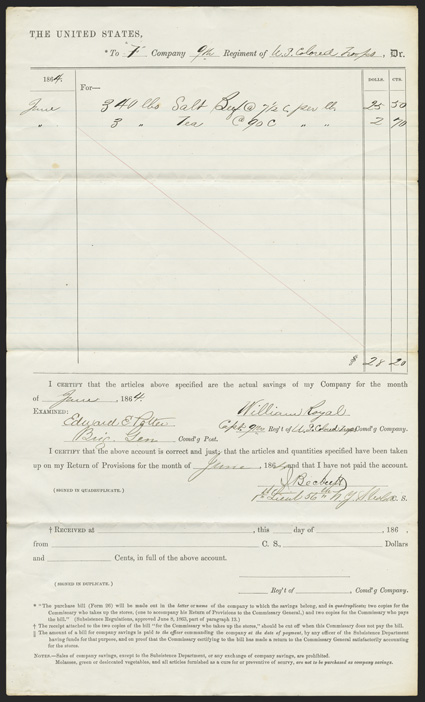 THE UNITED STATES,
* To "F" Company 9th Regiment of U.S. Colored Troops, Dr.
1864. DOLLS. CTS.
For—
June 340 lbs Salt Beef @ 7 1/2 c. per lb. 25 50
" 3 " Tea @ 90 c " " 2 70
$ 28 20
I CERTIFY that the articles above specified are the actual savings of my Company for the month
of June, 1864.
William Royal
EXAMINED:
Edward E. Potter Capt. 9th Reg't of U.S. Cold Troops Comd'g Company.
Brig. Gen Comd'g Post.
I CERTIFY that the above account is correct and just; that the articles and quantities specified have been taken
up on my Return of Provisions for the month of June, 1864, and that I have not paid the account.
J Beckett
(SIGNED IN QUADRUPLICATE.) 1st Lieut 56th N.Y. C. S.
† RECEIVED at , this day of , 186 ,
from C. S. Dollars
and Cents, in full of the above account.
(SIGNED IN DUPLICATE.)
Reg't of , Comd'g Company.
* "The purchase bill (Form 26) will be made out in the letter or name of the company to which the savings belong, and in quadruplicate; two copies for the
Commissary who takes up the stores, (one to accompany his Return of Provisions to the Commissary General,) and two copies for the Commissary who pays
the bill." (Subsistence Regulations, approved June 8, 1863, part of paragraph 15.)
† The receipt attached to the two copies of the bill "for the Commissary who takes up the stores," should be cut off when this Commissary does not pay the bill.
The amount of a bill for company savings is paid to the officer commanding the company at the date of payment, by any officer of the Subsistence Department
having funds for that purpose, and on proof that the Commissary certifying to the bill has made a return to the Commissary General satisfactorily accounting
for the stores.
NOTES.—Sales of company savings, except to the Subsistence Department, or any exchange of company savings, are prohibited.
Molasses, green or desiccated vegetables, and all articles furnished as a cure for or preventive of scurvy, are not to be purchased as company savings.